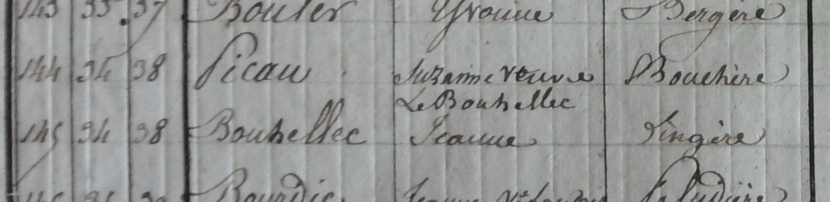 143 33 37 Bouler Yvonne Bergère
144 34 38 Picau Suzanne veuve Bouchère
Le Bouhellec
145 34 38 Bouhellec Jeanne Lingère
Bourdic Jeanne